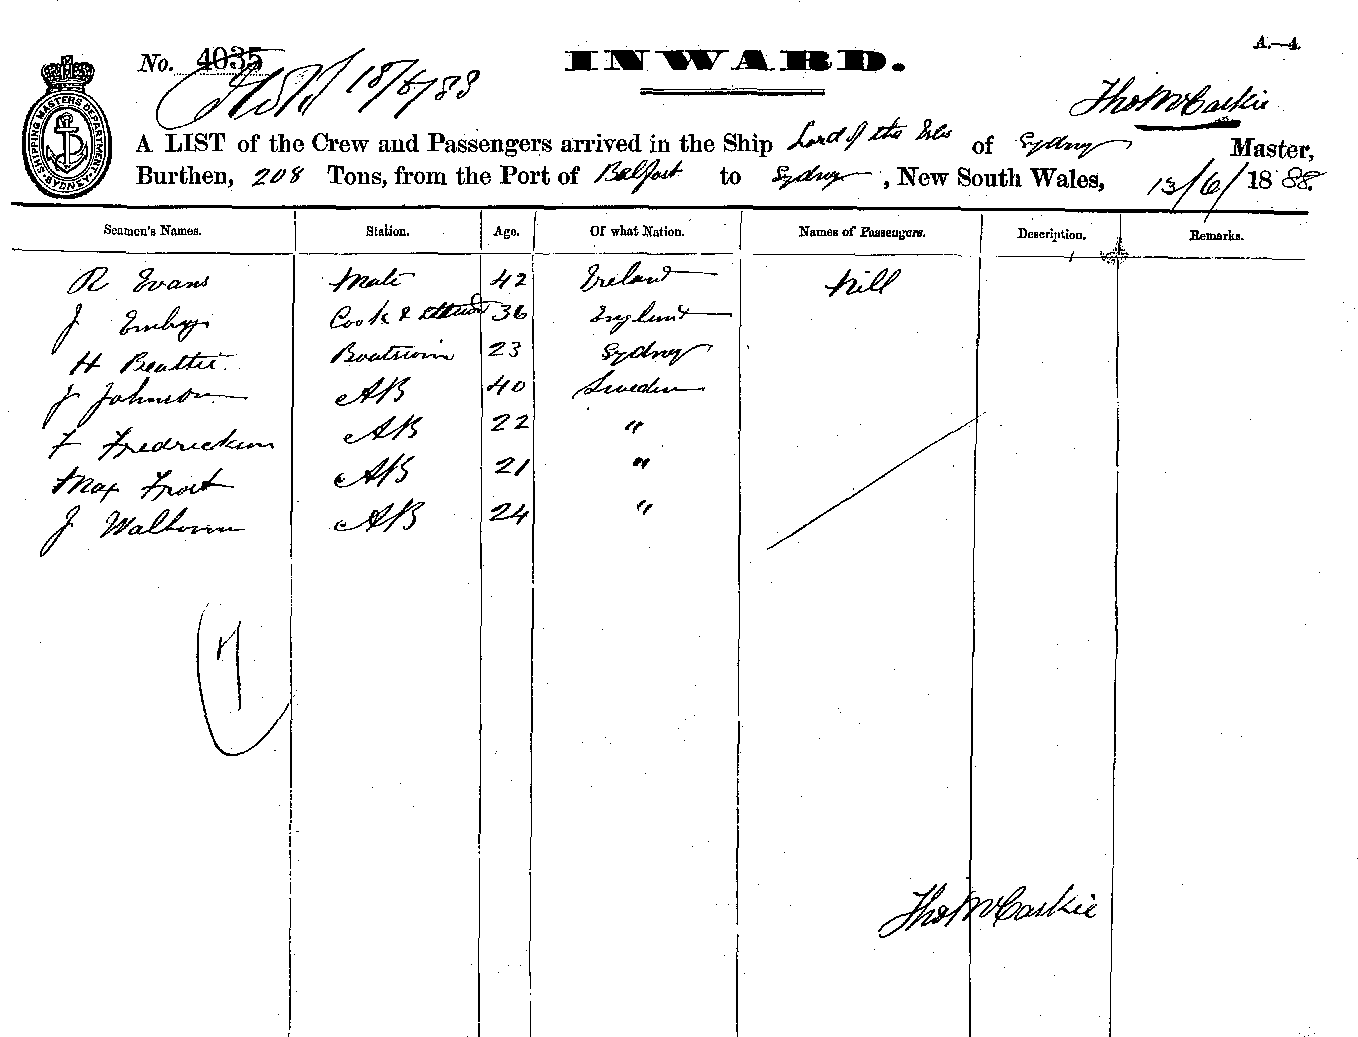 A.—4.
No. 4035
INWARD.
18/6/88
Thos McCaskie
SHIPPING MASTERS DEPARTMENT SYDNEY
A LIST of the Crew and Passengers arrived in the Ship Lord of the Isles of Sydney Master,
Burthen, 208 Tons, from the Port of Belfast to Sydney, New South Wales, 13/6/1888.
Seamen's Names. Station. Age. Of what Nation. Names of Passengers. Description. Remarks.
R Evans Mate 42 Ireland Nill
J Cook & Steward 36 England
H Beattie Boatswain 23 Sydney
J Johnson AB 40 Sweden
F Fredrickson AB 22 "
Max Frost AB 21 "
J AB 24 "
7
Thos McCaskie